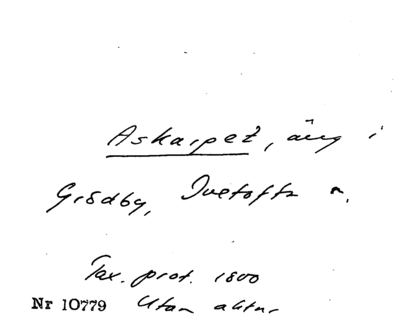 Askarpet, äng i
Grödby, Ivetofta s.
Tax. prot. 1800
Nr 10779 Utan aktnr